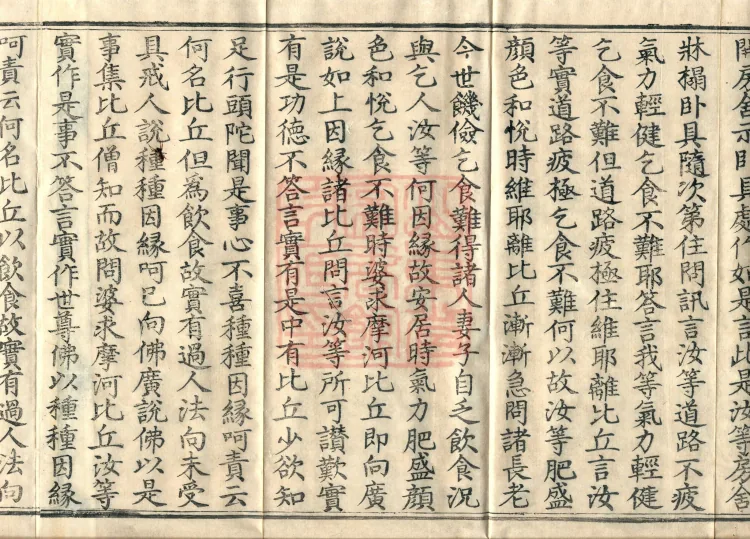 開房舍示臥具處作如是言此是汝等房舍
牀榻臥具隨次第住問訊言汝等道路不疲
氣力輕健乞食不難耶答言我等氣力輕健
乞食不難但道路疲極住維耶離比丘言汝
等實道路疲極乞食不難何以故汝等肥盛
顏色和悅時維耶離比丘漸漸急問諸長老
今世饑儉乞食難得諸人妻子自乏飲食況
與乞人汝等何因緣故安居時氣力肥盛顏
色和悅乞食不難時婆求摩河比丘即向廣
說如上因緣諸比丘問言汝等所可讃歎實
有是功德不答言實有是中有比丘少欲知
足行頭陀聞是事心不喜種種因緣呵責云
何名比丘但爲飲食故實有過人法向未受
具戒人說種種因緣呵已向佛廣說佛以是
事集比丘僧知而故問婆求摩河比丘汝等
實作是事不答言實作世尊佛以種種因緣
呵責云何名比丘以飲食故實有過人法向